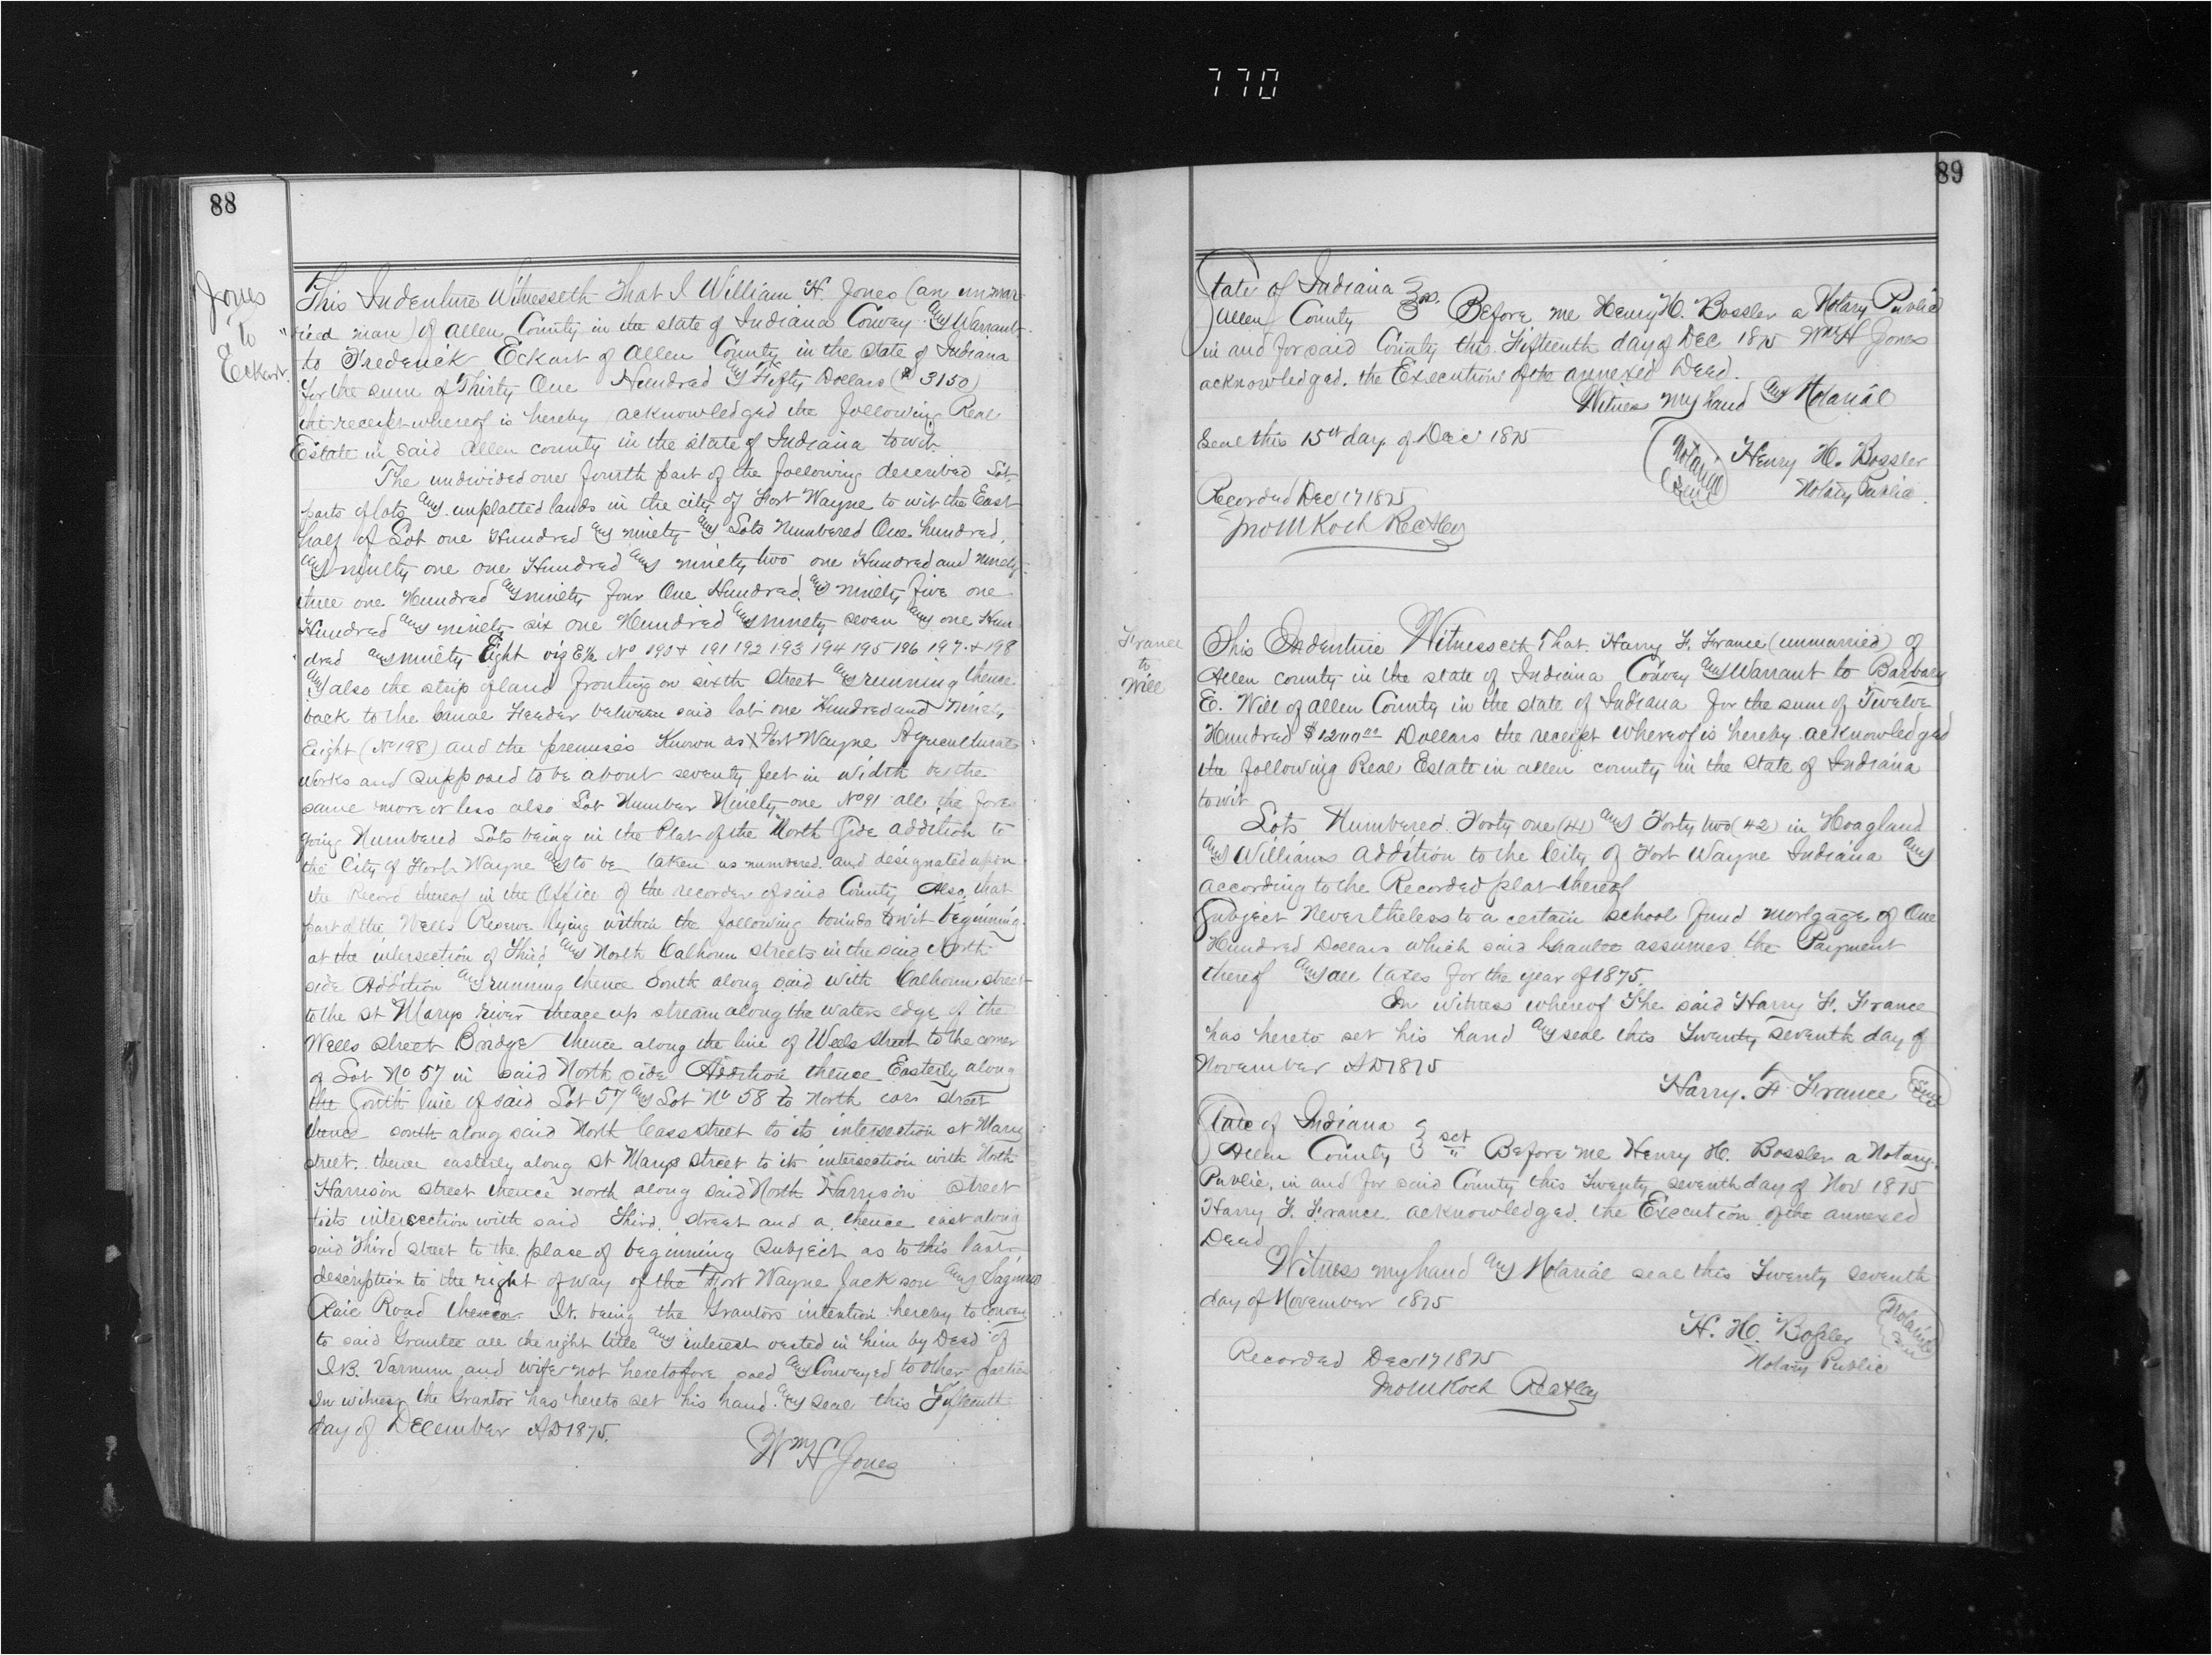 770
88
Jones
to
Eckart.
This Indenture Witnesseth That I William H. Jones (an unmar
ried man) of Allen County in the state of Indiana Convey and Warrant
to Frederick Eckart of Allen County in the state of Indiana
for the sum of Thirty One Hundred and Fifty Dollars ($ 3150)
the receipt whereof is hereby acknowledged the following Real
Estate in said Allen county in the state of Indiana towit.
The undivided one fourth part of the following described Lot,
parts of lots and unplatted lands in the city of Fort Wayne to wit the East
half of Lot one Hundred and ninety and Lots Numbered One hundred,
and ninety one one Hundred and ninety two one Hundred and ninety
three one Hundred and ninety four One Hundred and ninety five one
Hundred and ninety six one Hundred and ninety seven and one Hun
dred and ninety Eight viz E½ No 190 + 191 192 193 194 195 196 197 + 198
and also the strip of land fronting on sixth street and running thence
back to the Canal Feeder between said lot one Hundred and Ninety
Eight (No 198) and the premises Known as Fort Wayne Agricultural
works and supposed to be about seventy feet in width be the
same more or less also Lot Number Ninety one No 91 all the fore
going Numbered Lots being in the Plat of the North Side addition to
the City of Fort Wayne and to be taken as numbered and designated upon
the Record thereof in the Office of the recorder of said County Also, that
part of the Wells Reserve lying within the following bounds to wit beginning
at the intersection of Third and North Calhoun streets in the said North
side Addition and running thence South along said with Calhoun street
to the St Marys river thence up stream along the waters edge of the
Wells Street Bridge thence along the line of Wells street to the corner
of Lot No 57 in said North side Addition thence Easterly along
the South line of said Lot 57 and Lot No 58 to North cass street
thence south along said North Cass street to its intersection St Marys
street. thence easterly along St Marys street to its intersection with North
Harrison street thence north along said North Harrison street
to its intersection with said Third street and a thence east along
said Third street to the place of beginning Subject as to this last
description to the right of way of the Fort Wayne Jackson and Saginaw
Rail Road thereon. It being the Grantors intention hereby to convey
to said Grantee all the right title and interest vested in him by Deed of
I.B. Varnum and wife not heretofore sold and Conveyed to other parties
In witness the Grantor has hereto set his hand and seal this Fifteenth
day of December AD 1875.
Wm H Jones
89
State of Indiana
Allen County Before me Henry H. Bossler a Notary Public
in and for said County this Fifteenth day of Dec 1875 Wm H Jones
acknowledged. the Execution of the annexed Deed.
Witness my hand and Notarial
Seal this 15th day of Dec 1875
Notarial Seal
Henry H. Bossler
Notary Public.
Recorded Dec 17 1875
Jno M Koch Rec
France
to
Will
This Indenture Witnesseth That Harry F. France (unmarried) of
Allen county in the state of Indiana Convey and Warrant to Barbary
E. Will of Allen County in the state of Indiana for the sum of Twelve
Hundred $1200 00 Dollars the receipt whereof is hereby acknowledged
the following Real Estate in Allen county in the State of Indiana
towit
Lots Numbered Forty one (41) and Forty two (42) in Hoagland
and Williams addition to the City of Fort Wayne Indiana and
according to the Recorded plat thereof
Subject Nevertheless to a certain school fund mortgage of One
Hundred Dollars which said Grantee assumes the Payment
thereof and all taxes for the year of 1875.
In witness whereof The said Harry F. France
has hereto set his hand and seal this Twenty seventh day of
November AD 1875
Harry. F. France Seal
State of Indiana
Allen County sct Before me Henry H. Bossler a Notary
Public, in and for said County this Twenty seventh day of Nov 1875
Harry F. France. acknowledged. the Execution of the annexed
Deed
Witness my hand and Notarial seal this Twenty seventh
day of November 1875
H. H. Bossler
Notary Public
Notarial Seal
Recorded Dec 17 1875
Jno M Koch Rec